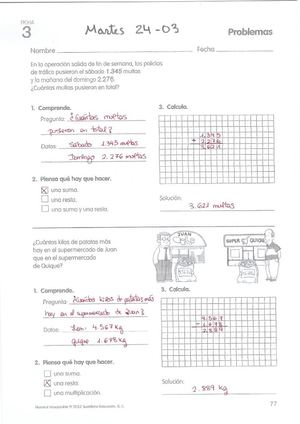 FICHA
3
Martes 24-03
Problemas
Nombre
Fecha
En la operación salida de fin de semana, los policías
de tráfico pusieron el sábado 1.345 multas
y la mañana del domingo 2.276.
¿Cuántas multas pusieron en total?
1. Comprende.
Pregunta: ¿Cuántas multas
pusieron en total?
Datos: Sábado 1.345 multas
Domingo 2.276 multas
2. Piensa qué hay que hacer.
una suma.
una resta.
una suma y una resta.
3. Calcula.
1.345
+ 2.276
3.621
Solución:
3.621 multas
¿Cuántos kilos de patatas más
hay en el supermercado de Juan
que en el supermercado
de Quique?
JUAN
SUPER QUIQUE
1. Comprende.
Pregunta: ¿Cuántos kilos de patatas más
hay en el supermercado de Juan?
Datos: Juan 4.567 kg
Quique 1.678 kg
2. Piensa qué hay que hacer.
una suma.
una resta.
una multiplicación.
3. Calcula.
4.567
- 1.678
2.889
Solución:
2.889 kg
Material fotocopiable © 2012 Santillana Educación, S. L.
77